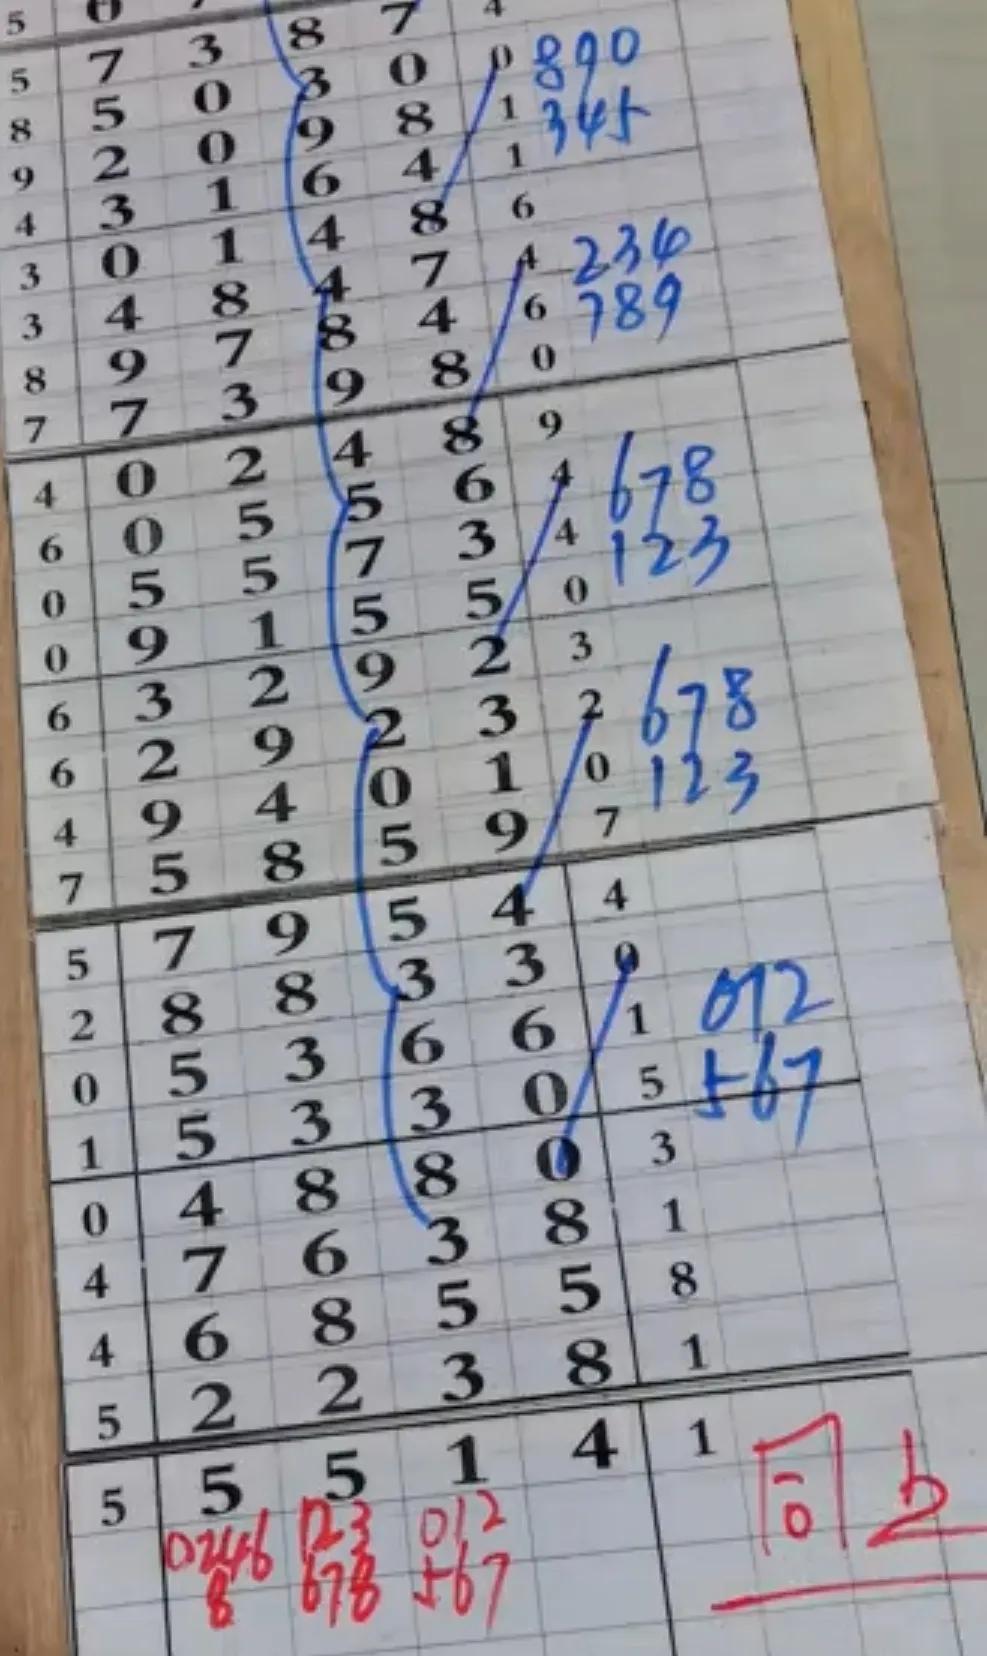 5 0 4
5 7 3 8 7 0 890
8 5 0 3 0 1 345
9 2 0 9 8 1
4 3 1 6 4 6
3 0 1 4 8 4 234
3 4 8 4 7 6 789
8 9 7 8 4 0
7 7 3 9 8
4 0 2 4 8 9
6 0 5 5 6 4 678
0 5 5 7 3 4 123
0 9 1 5 5 0
6 3 2 9 2 3
6 2 9 2 3 2 678
4 9 4 0 1 0 123
7 5 8 5 9 7
5 7 9 5 4 4
2 8 8 3 3 0
0 5 3 6 6 1 012
1 5 3 3 0 5 567
0 4 8 8 0 3
4 7 6 3 8 1
4 6 8 5 5 8
5 2 2 3 8 1
5 5 5 1 4 1
0246 123 012
8 678 567